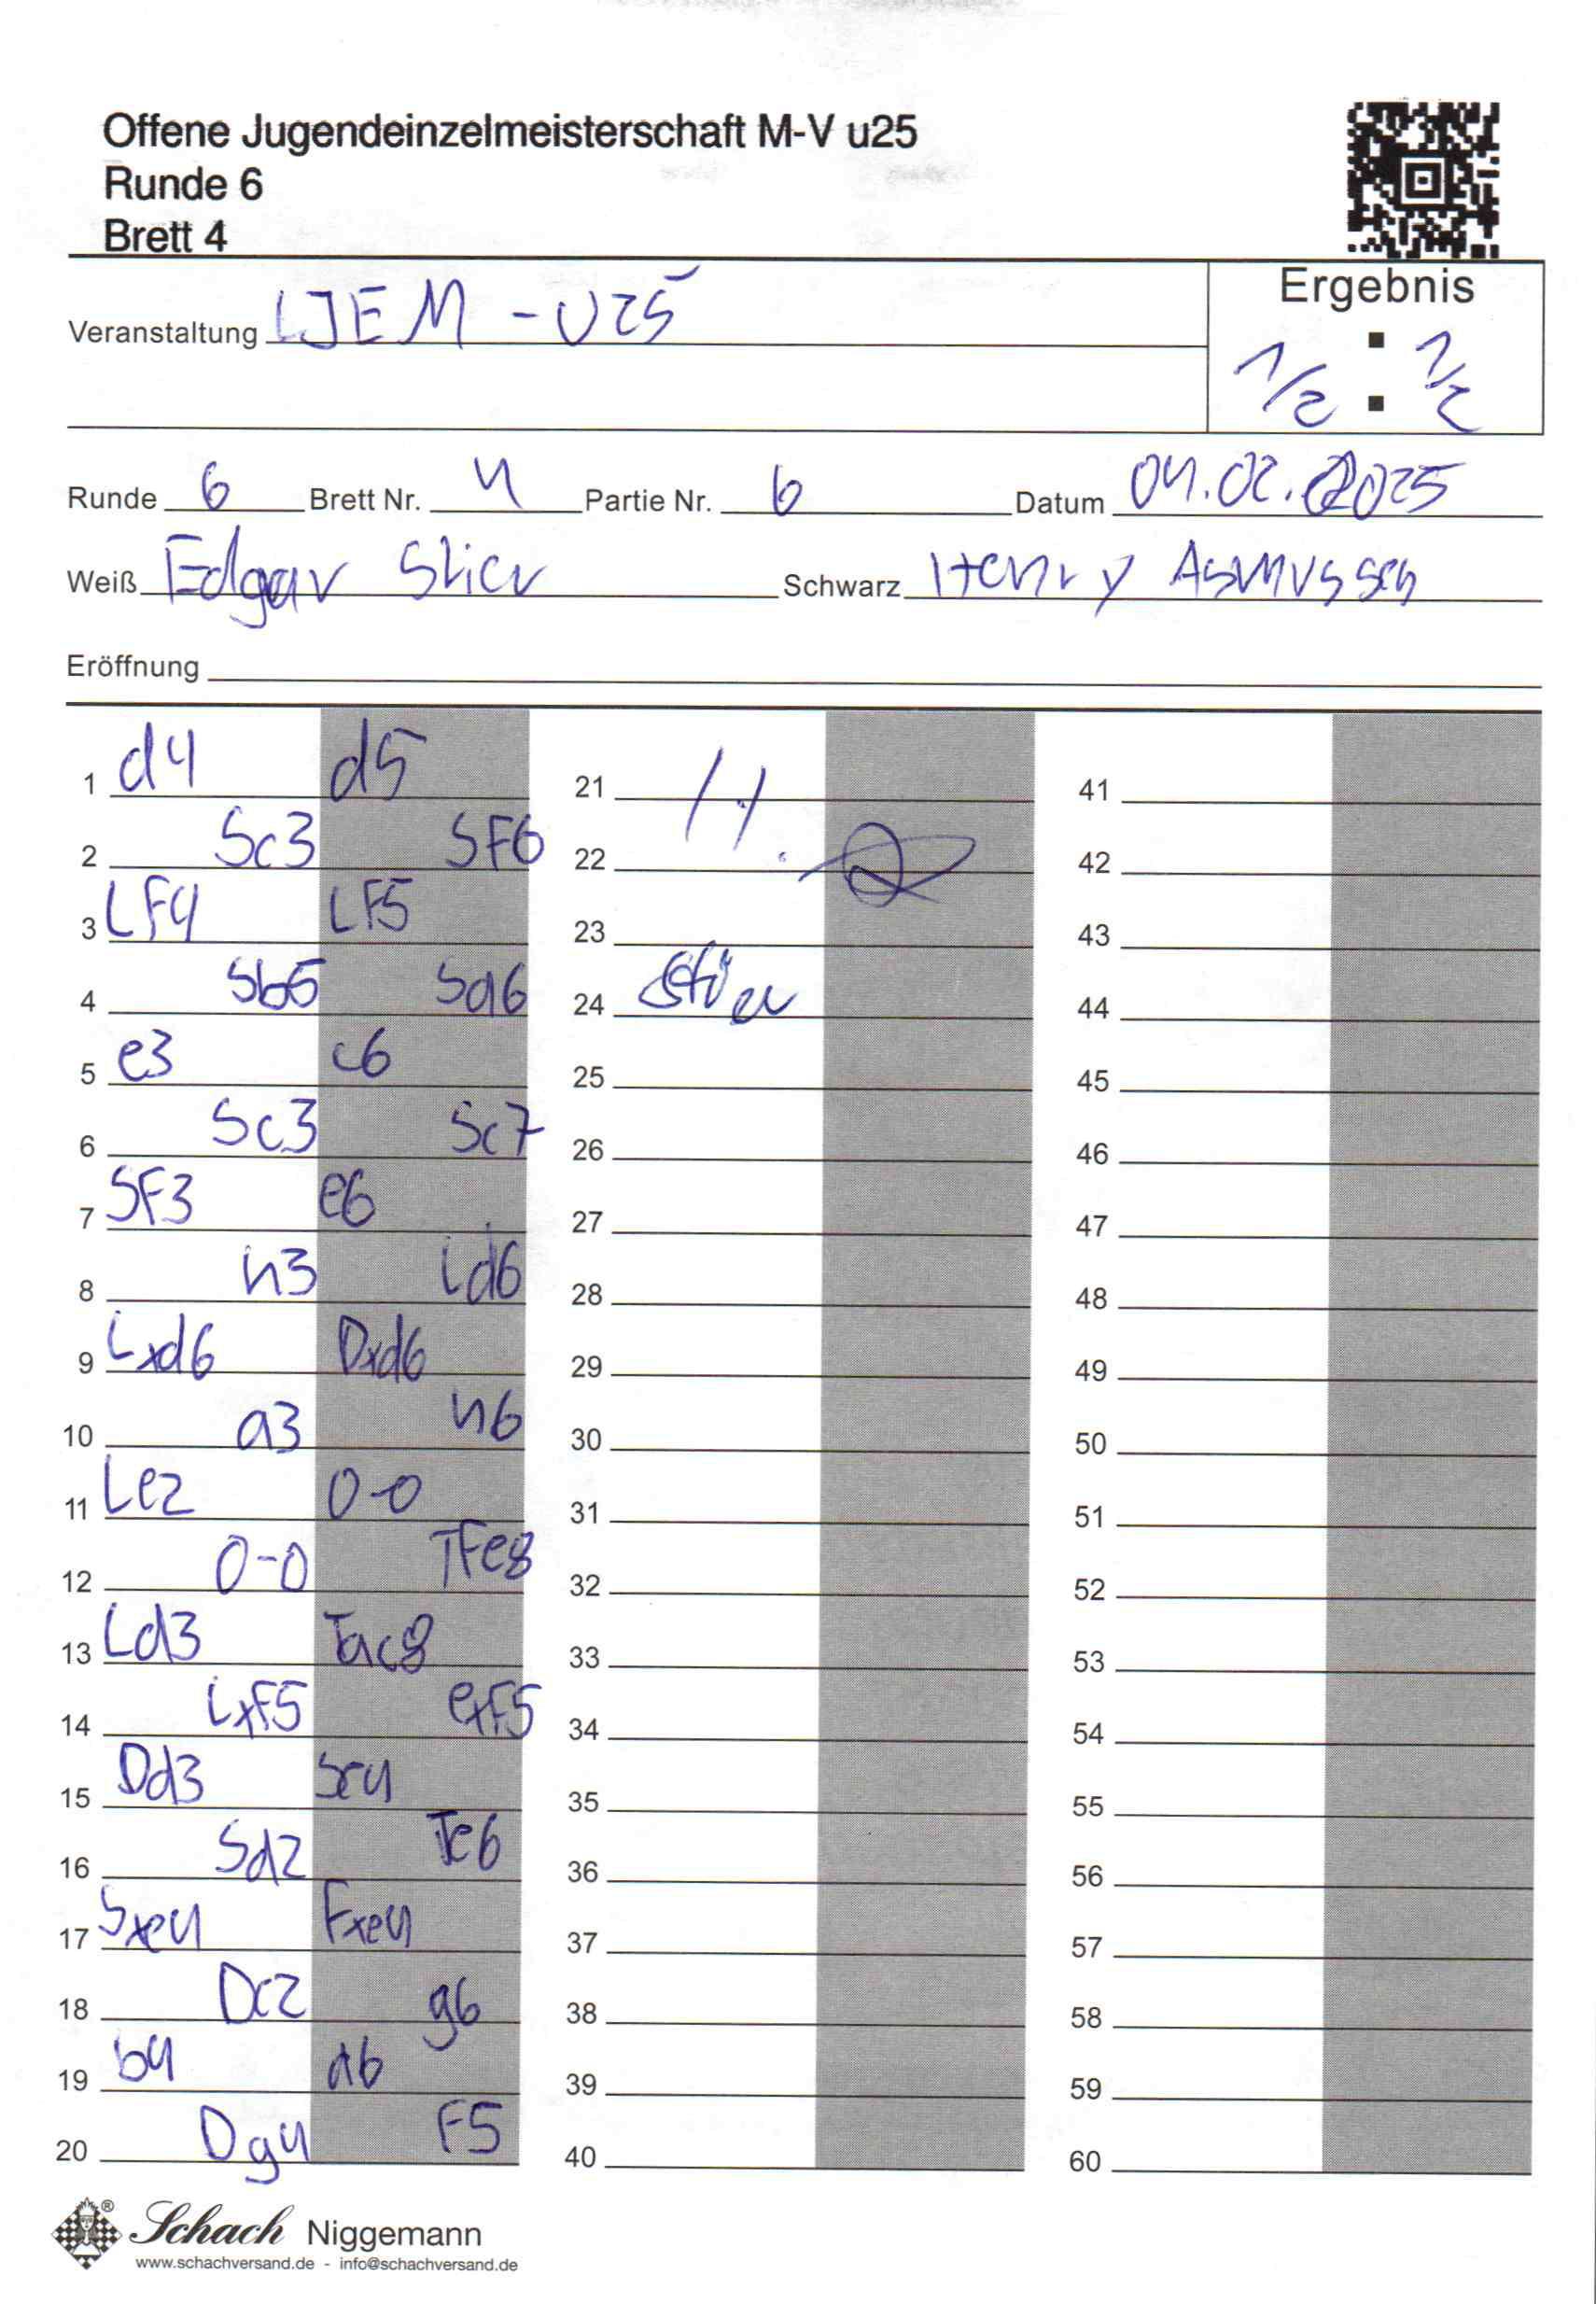 Offene Jugendeinzelmeisterschaft M-V u25
Runde 6
Brett 4
Ergebnis
Veranstaltung LJEM - U25
1/2 : 1/2
Runde 6 Brett Nr. 4 Partie Nr. 6 Datum 04.02.2025
Weiß Edgar Stier Schwarz Henry Asmussen
Eröffnung
1 d4 d5 21 41
2 Sc3 SF6 22 42
3 LF4 LF5 23 43
4 Sb5 Sa6 24 Stier 44
5 e3 c6 25 45
6 Sc3 Sc7 26 46
7 SF3 e6 27 47
8 h3 Ld6 28 48
9 Lxd6 Dxd6 29 49
10 a3 h6 30 50
11 Le2 0-0 31 51
12 0-0 TFe8 32 52
13 Ld3 Tac8 33 53
14 LxF5 exF5 34 54
15 Dd3 Se4 35 55
16 Sd2 Te6 36 56
17 Sxe4 Fxe4 37 57
18 Dc2 g6 38 58
19 b4 a6 39 59
20 Dg4 F5 40 60
Schach Niggemann
www.schachversand.de - info@schachversand.de